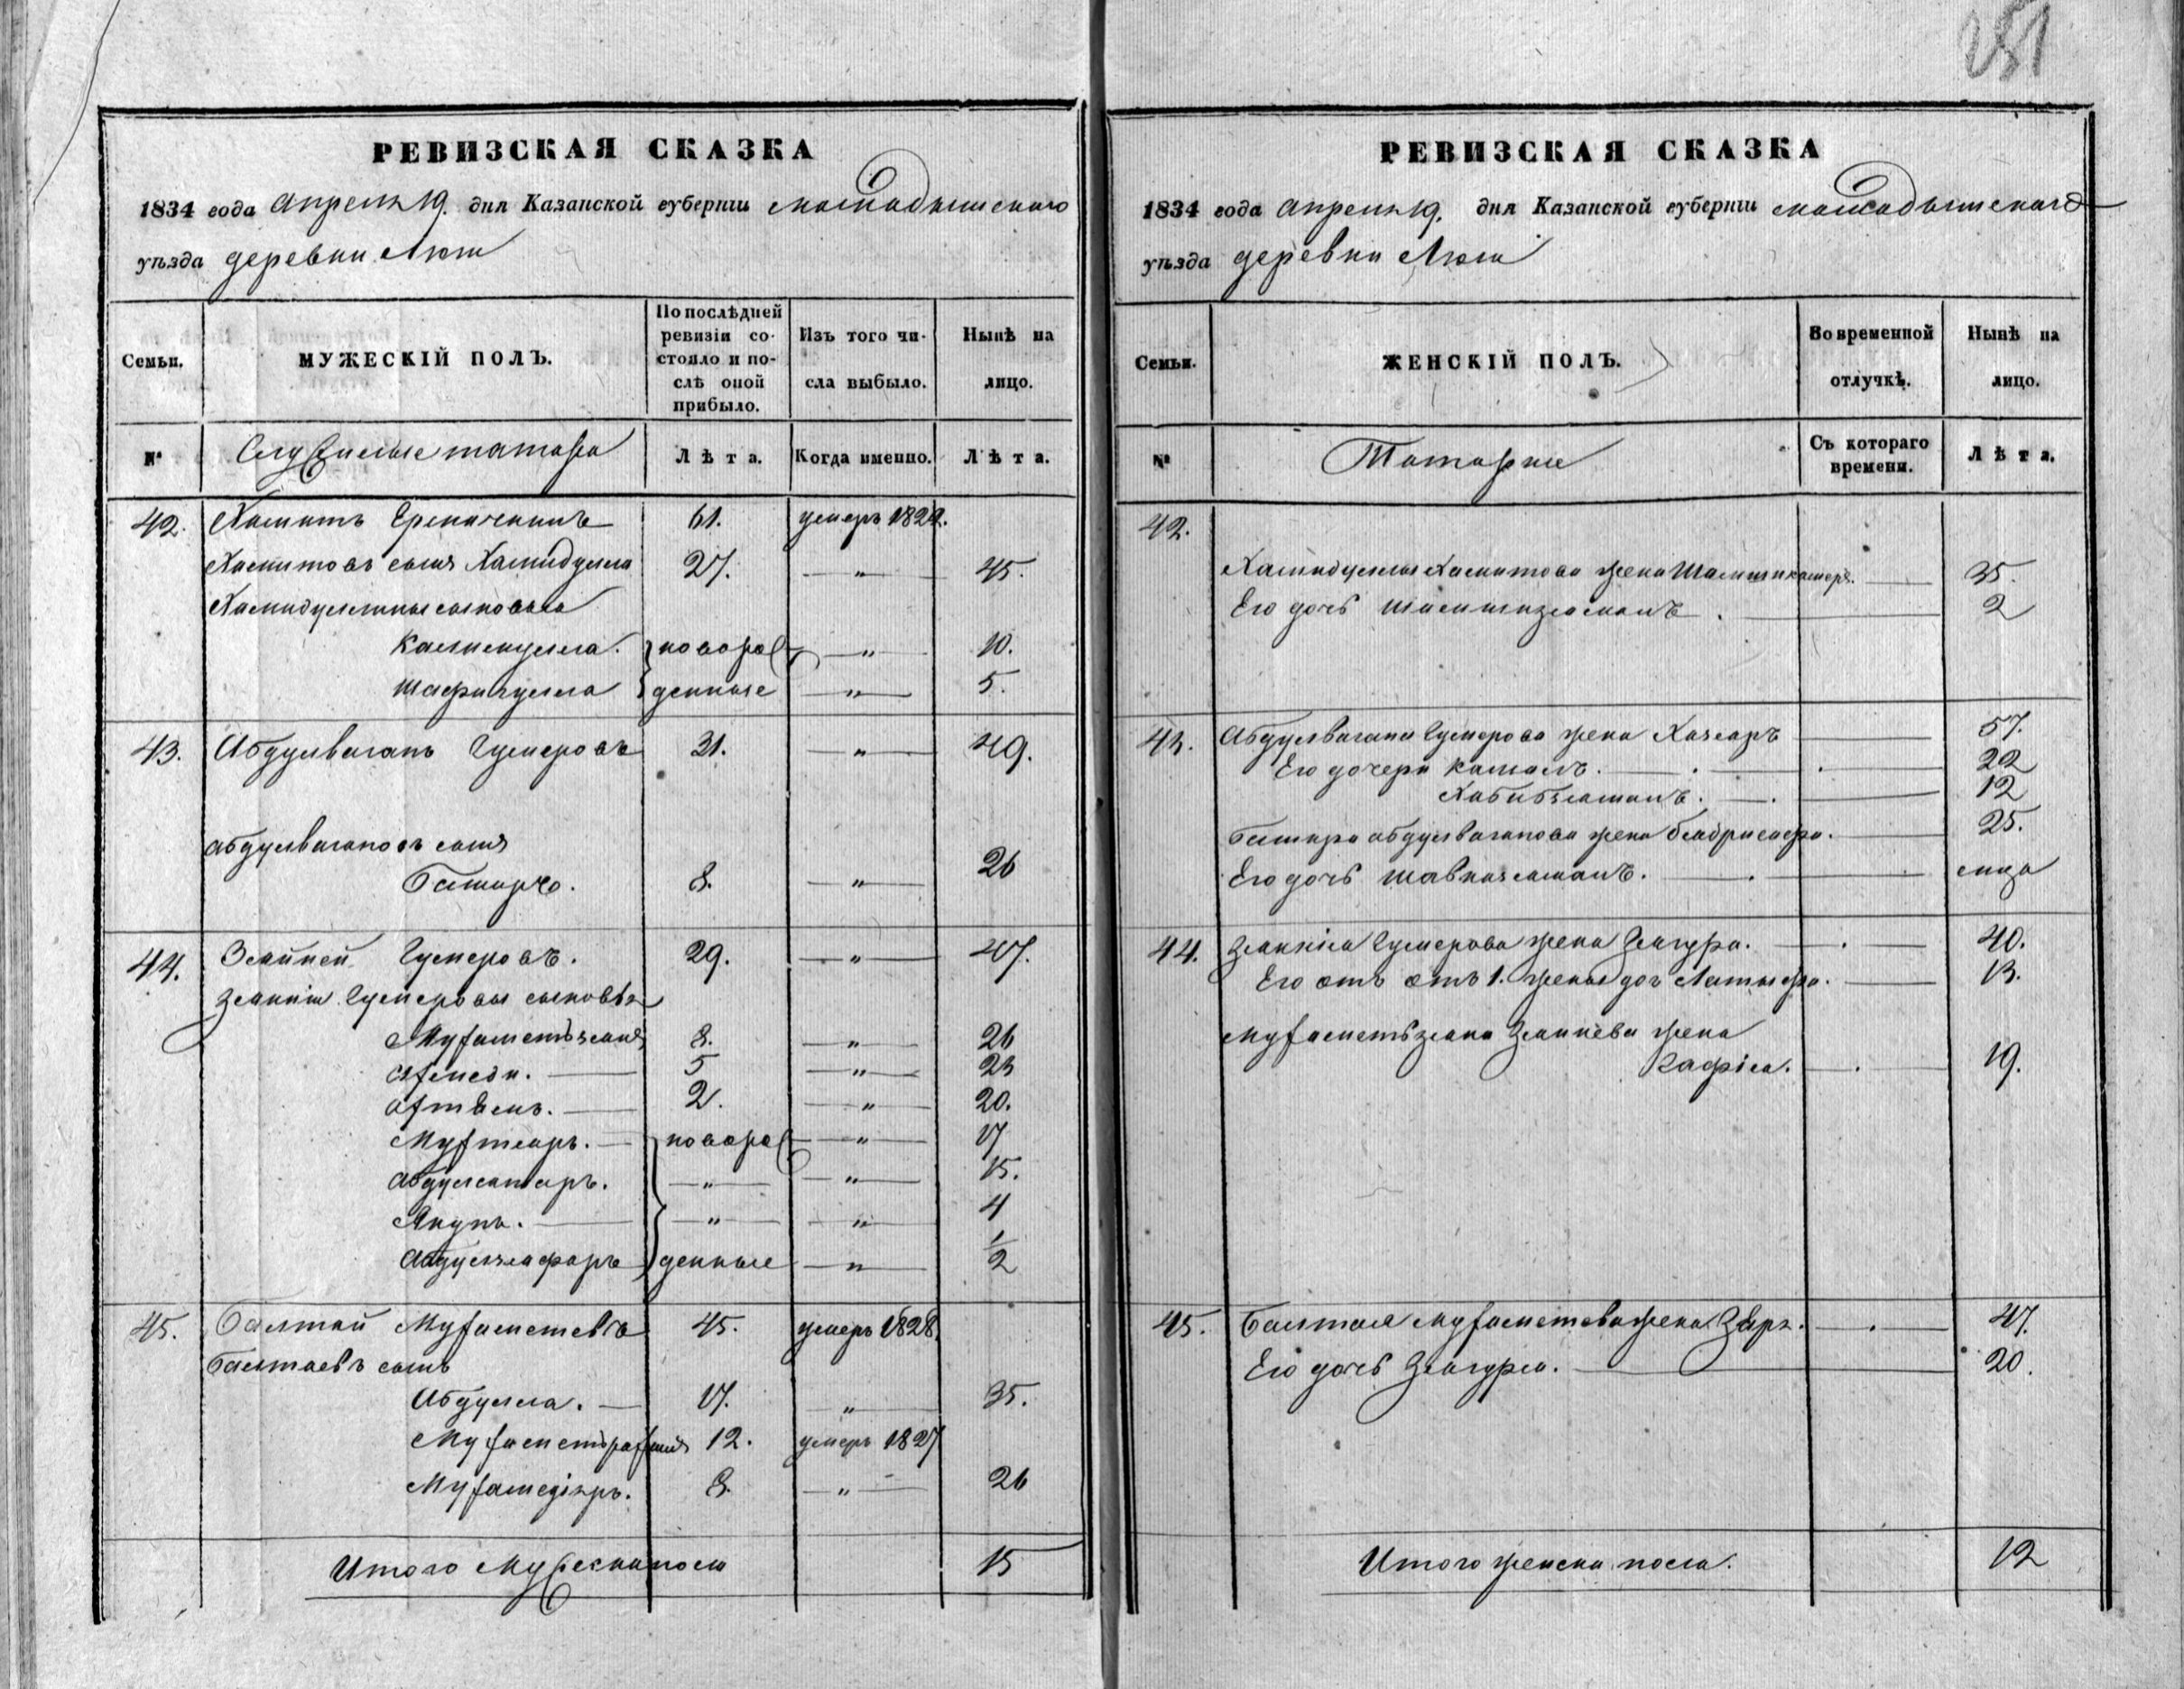 251
РЕВИЗСКАЯ СКАЗКА
1834 года апреля 19. дня Казанской губернии мамадышскаго
уѣзда деревни Люш
Семьи.
МУЖЕСКІЙ ПОЛЪ.
По послѣдней ревизіи состояло и послѣ оной прибыло.
Изъ того числа выбыло.
Нынѣ на лицо.
№
Служилые татара
Лѣта.
Когда именно.
Лѣта.
42. Хамитъ 61. умеръ 1822.
Хамитовъ сынъ Хамидулла 27. — " — 45.
Хамидуллины сыновья
Калимулла. новорож — " — 10.
Шафигулла денные — " — 5.
43. Абдулвагапъ Гумеровъ 31. — " — 49.
Абдулвагаповъ сынъ
Баширъ. 8. — " — 26
44. Зяйней Гумеровъ. 29. — " — 47.
Гумеровы сыновья
Мухаметзянъ 8. — " — 26
Ахмеди. 5 — " — 23
Ахтямъ. 2. — " — 20.
Мухтаръ. новорож — " — 17
Абдулсатаръ. — " — — " — 15.
Якупъ. — " — — " — 4
Абдулзяфаръ денные — " — 1/2
45. Балтай Мухаметевъ 45. умеръ 1828.
Балтаевъ сынъ
Абдулла. 17. — " — 35.
Мухаметрахимъ 12. умеръ 1827
8. — " — 26
Итого мужеска пола 15
РЕВИЗСКАЯ СКАЗКА
1834 года апреля 19. дня Казанской губернии мамадышскаго
уѣзда деревни Люш
Семьи.
ЖЕНСКІЙ ПОЛЪ.
Во временной отлучкѣ.
Нынѣ на лицо.
№
Татарки
Съ котораго времени.
Лѣта.
42.
Хамидуллы Хамитова жена Шамшикамеръ. — 35.
Его дочь Шамшизяманъ. — 2
43. Абдулвагапа Гумерова жена — 57.
Его дочери Камаль. — 22
Хабибзяманъ. — 12
Башира Абдулвагапова жена Бадрисафа. — 25.
Его дочь — 
44. Гумерова жена Зягура. — 40.
Его отъ 1. жены доч Латыфа. — 13.
Мухаметзяна Зяинева жена
Кафія. — 19.
45. Балтая Мухаметева жена — 47.
Его дочь Зягура. — 20.
Итого женска пола. 12